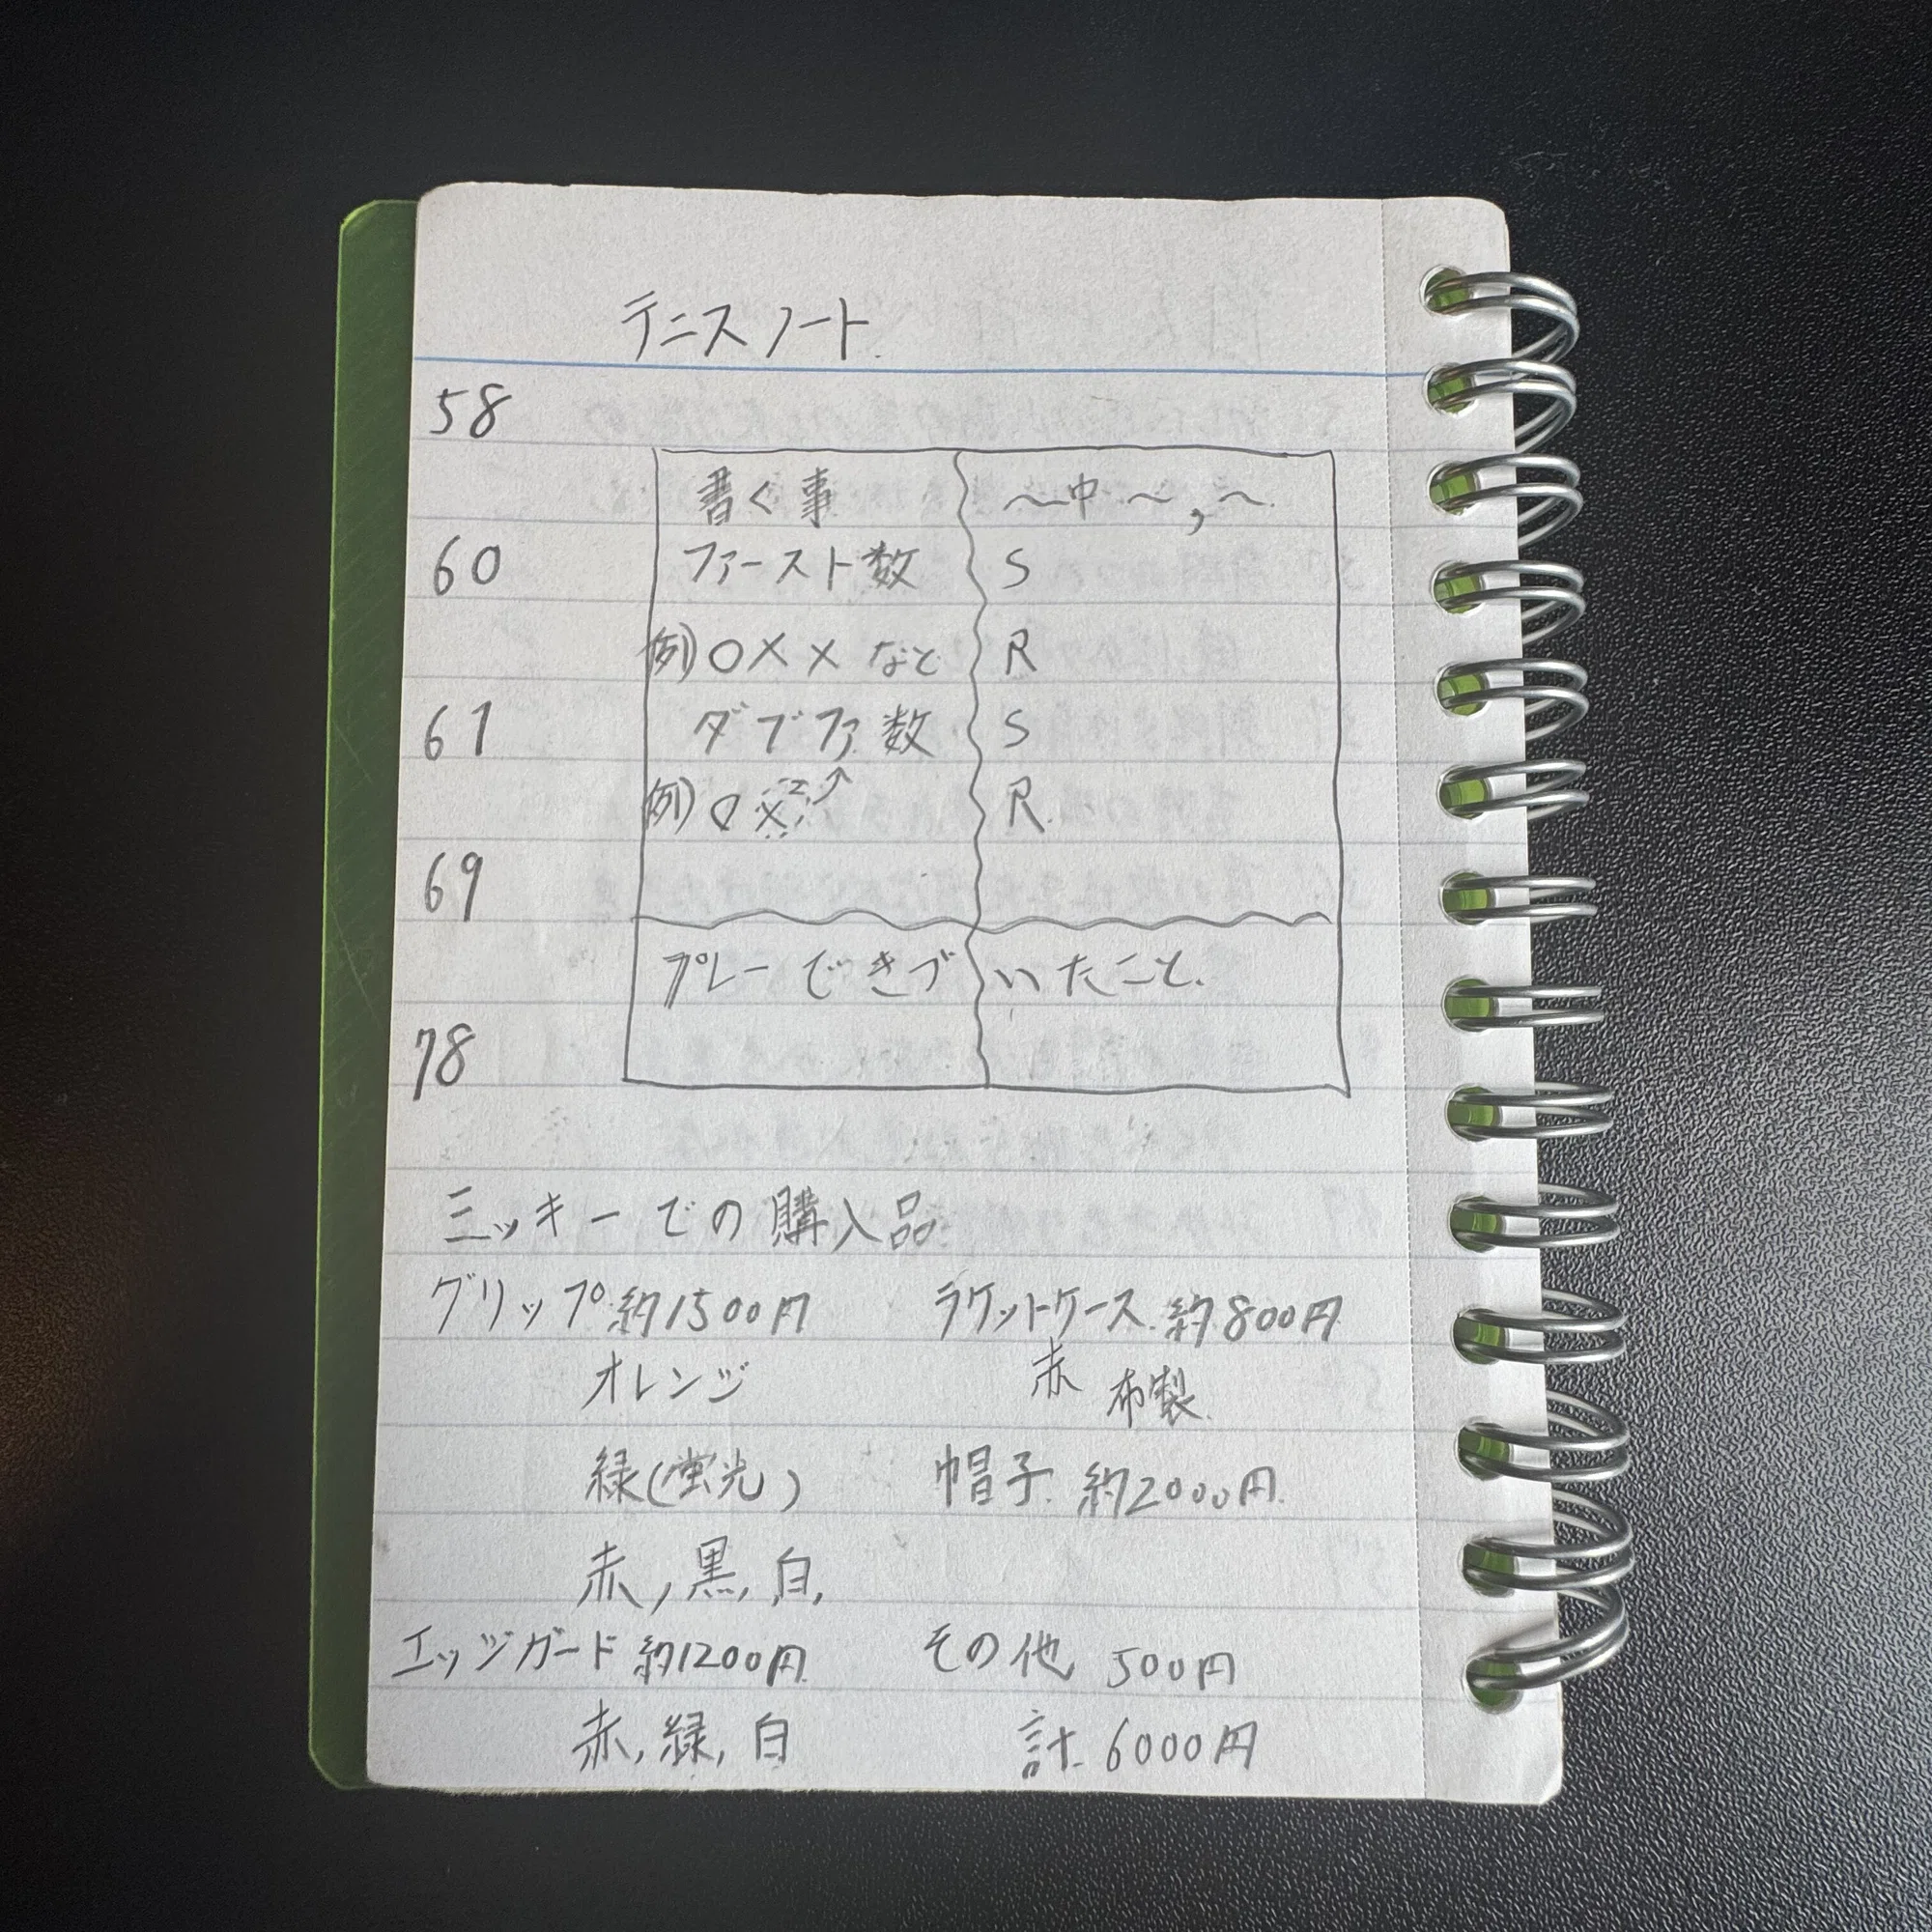 テニスノート
58
書く事 〜中〜,〜
60 ファースト数 S
例)○×× など R
61 ダブファ数 S
例)○× R
69
プレーできづいたこと.
78
ミッキーでの購入品
グリップ 約1500円 ラケットケース 約800円
オレンジ 赤 布製
緑(蛍光) 帽子 約2000円
赤,黒,白,
エッジガード 約1200円 その他 500円
赤,緑,白 計 6000円